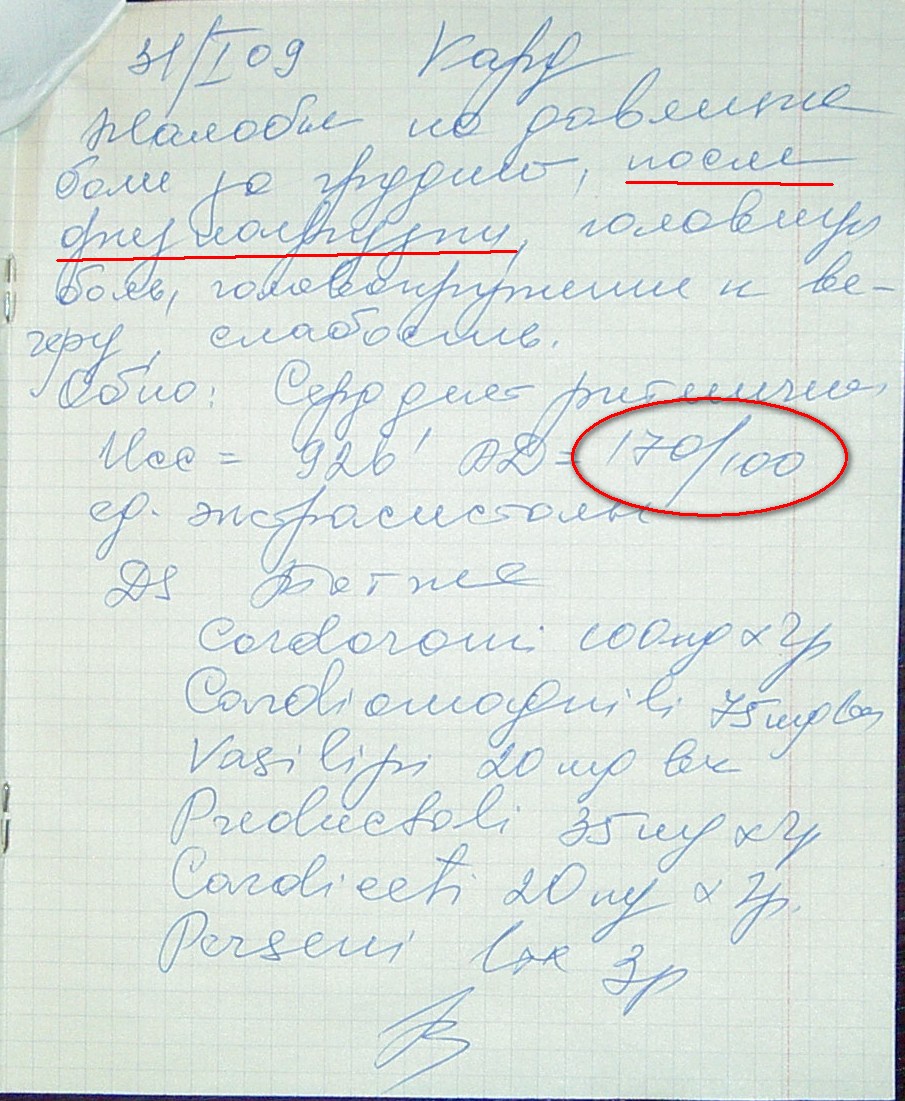 31/I 09 Кард
Жалобы на давящие
боли за грудиной, после
физ нагрузки, головную
боль, головокружение к ве-
черу, слабость.
Сердце ритмичное
ЧСС = 92 в' АД = 170/100
ед. экстрасистолы
DS
Cordaroni 100mg x 2р
Cardiomagnili 75mg
Vasilipi 20mg веч
Preductali 35mg x 2р
Cardiceti 20mg x 2р.
Perseni 3р